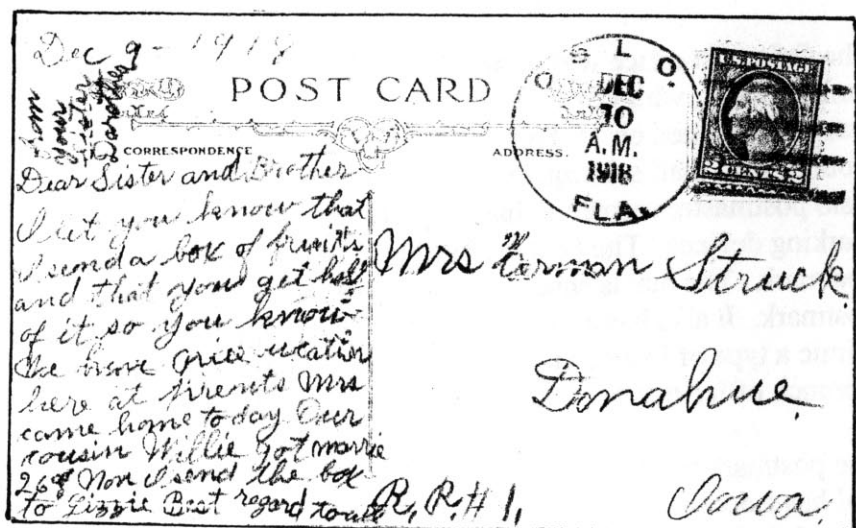 Dec 9 - 1918
from
your
sister
Dorothea
POST CARD
CORRESPONDENCE
ADDRESS.
OSLO.
DEC
10
A.M.
1918
FLA.
Dear Sister and Brother
I let you know that
I send a box of fruits
and that you get half
of it so you know
We have nice weather
here at present Mrs
came home to day Our
cousin Willie got marrie
26 of Nov I send the box
to Lizzie Best regard to all
Mrs Herman Struck.
Donahue.
R, R, # 1,
Iowa,